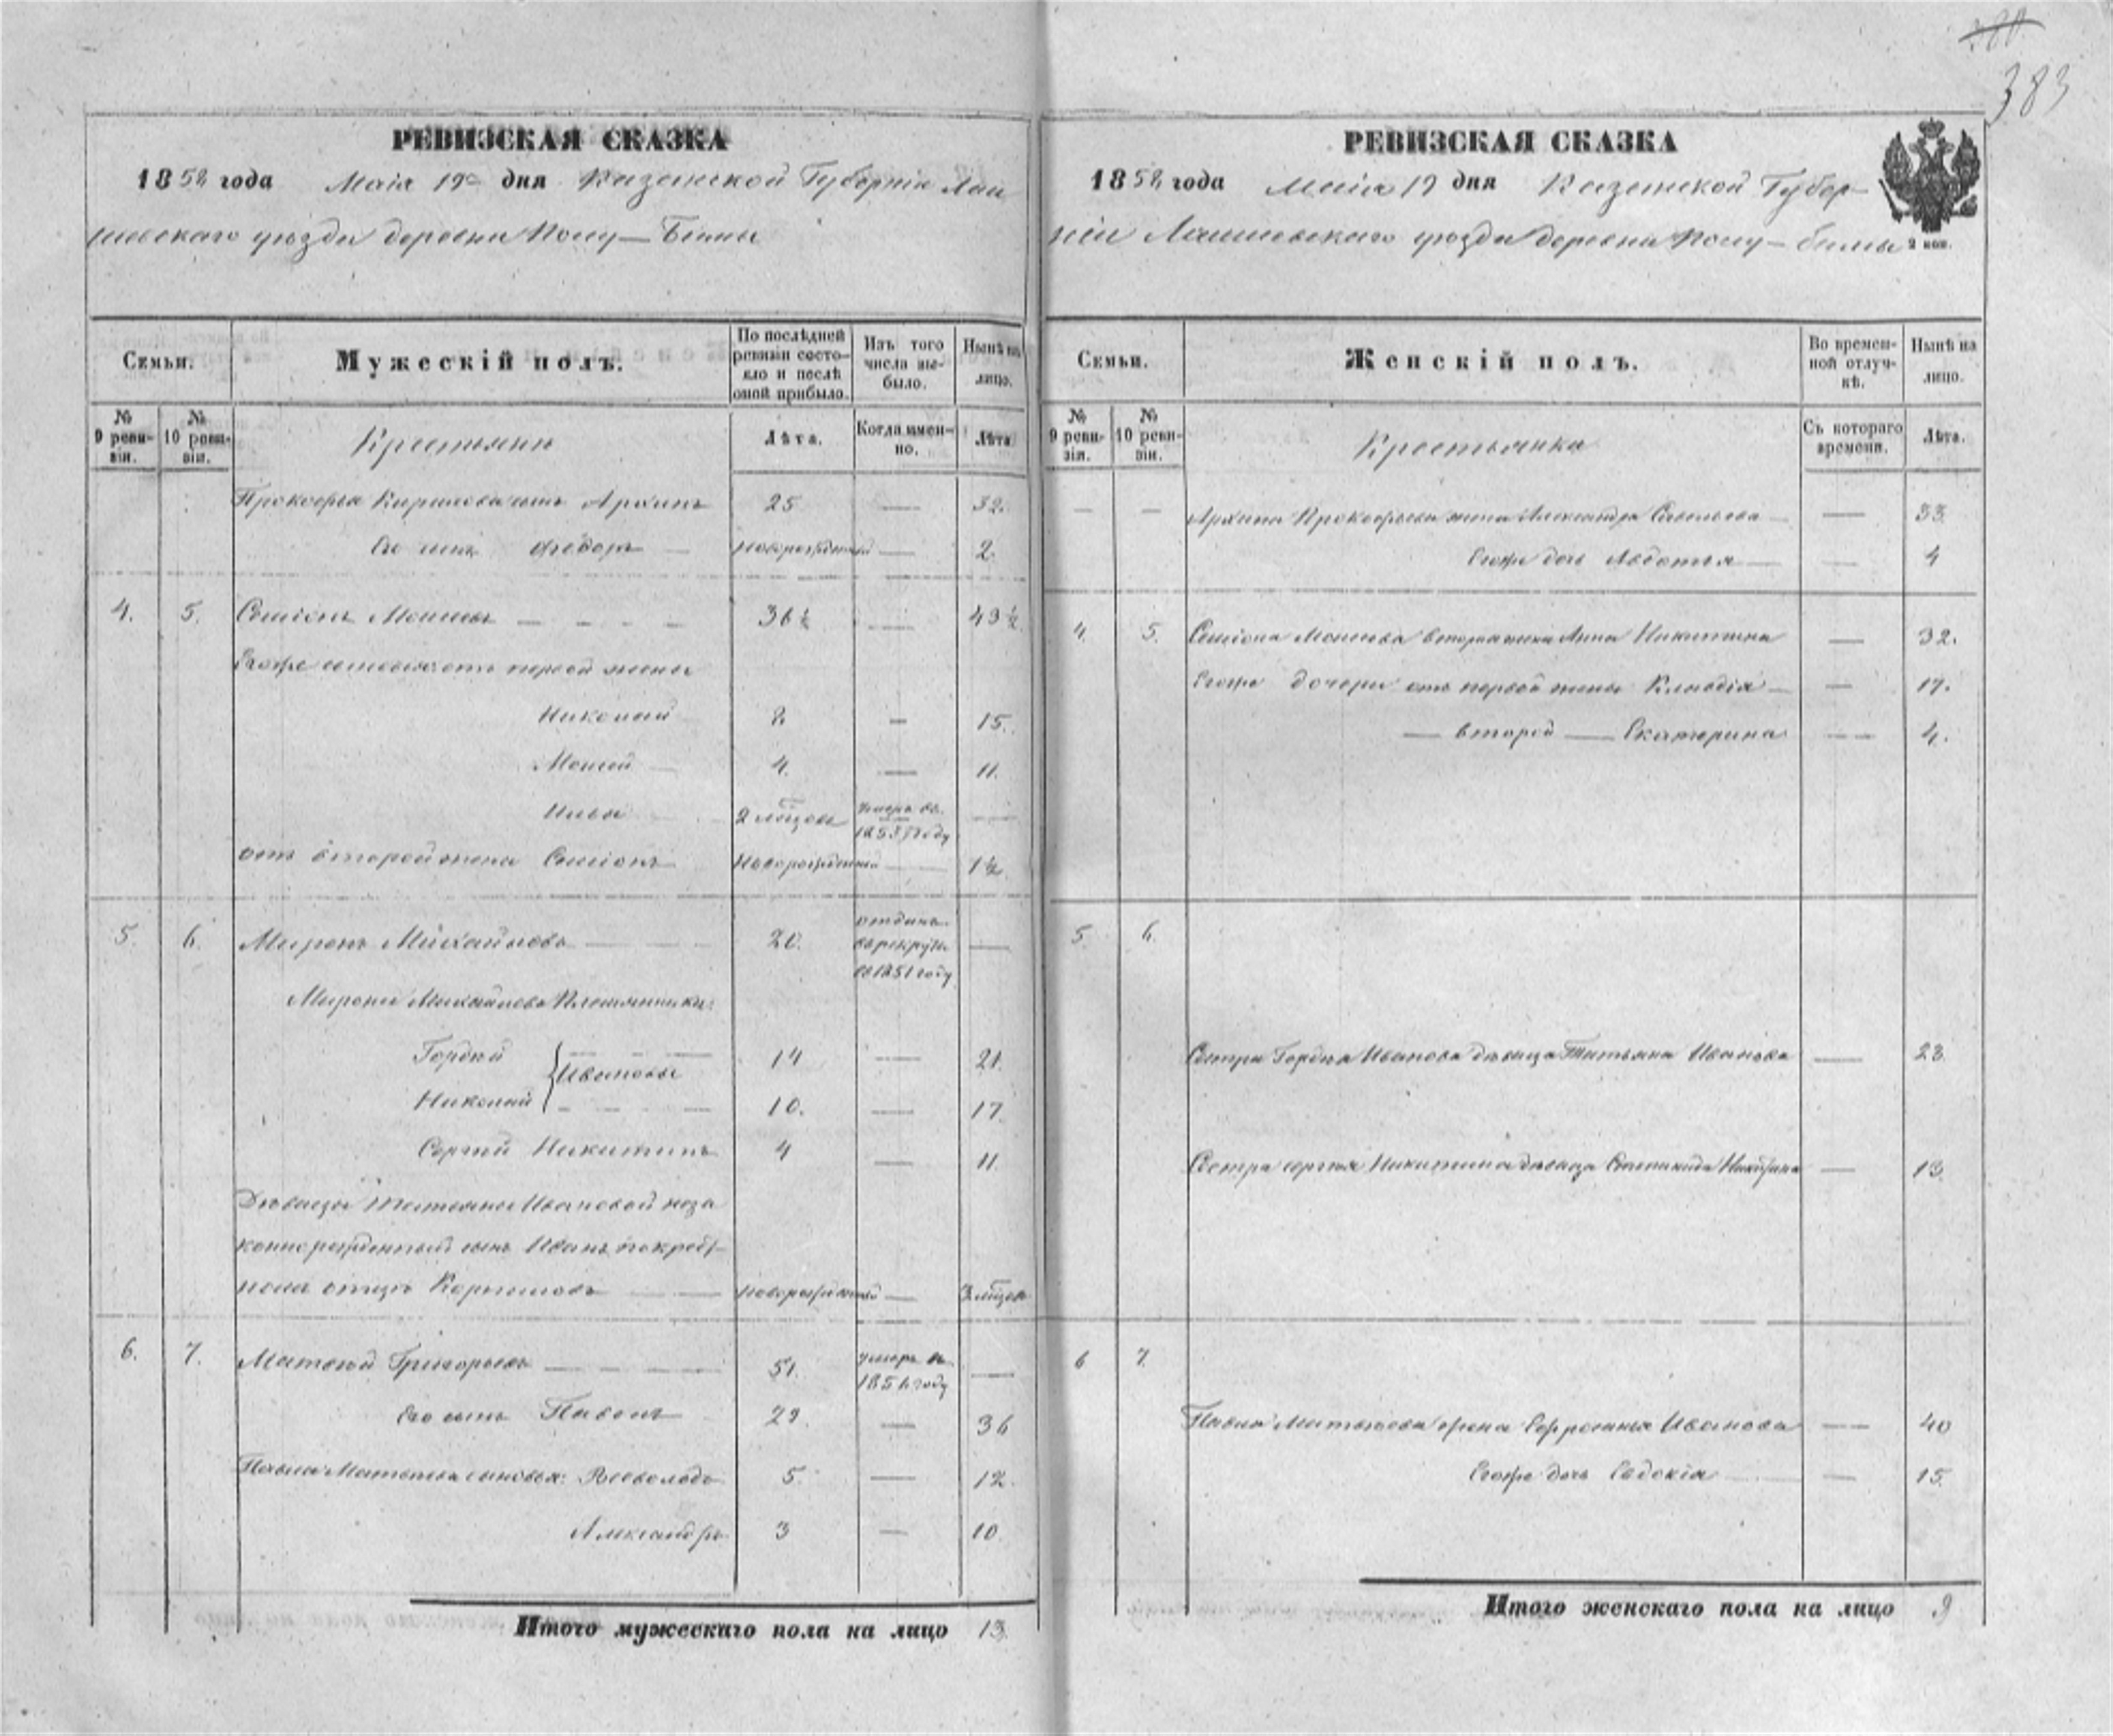 380
383
РЕВИЗСКАЯ СКАЗКА
1858 года Маія 19го дня Казанской Губерніи Лаи
шевскаго уѣзда деревни
Семьи.
Мужескій полъ.
По послѣдней ревизіи состояло и послѣ оной прибыло.
Изъ того числа выбыло.
Нынѣ на лицо.
№ 9 ревизіи.
№ 10 ревизіи.
Крестьяне
Лѣта.
Когда именно.
Лѣта
Прокофья Кирилова сынъ Архипъ 25 — 32.
Его сынъ Ѳедоръ — новорожденный — 2.
4. 5. Семіонъ Моисеевъ — - - — 36½ — 43½
Егоже сыновья: отъ первой жены
Николай 8. — 15.
Моисей — 4. — 11.
Илья 2 мѣсяцов умеръ въ 1853 году —
отъ второй жены Семіонъ новорожденный — 1½
5. 6. Миронъ Михайловъ — 20. отданъ въ рекруты въ 1851 году —
Мирона Михайлова Племянники:
Гордей 14 — 21.
Ивановы
Николай 10. — 17.
Сергѣй Никитинъ 4 — 11.
Дѣвицы Татьяны Ивановой неза
коннорожденный сынъ Иванъ по крест
ному отцу — новорожденный — 3 мѣсяц
6. 7. Матвѣй Григорьевъ — 51. умеръ въ 1856 году —
Его сынъ Павелъ 29. — 36
Павла Матвѣева сыновья: Всеволодъ 5. — 12.
Александръ 3 — 10
Итого мужескаго пола на лицо 13.
РЕВИЗСКАЯ СКАЗКА
1858 года Маія 19 дня Казанской Губер-
ніи Лаишевскаго уѣзда деревни
2 коп.
Семьи.
Женскій полъ.
Во временной отлучкѣ.
Нынѣ на лицо.
№ 9 ревизіи.
№ 10 ревизіи.
Крестьянка
Съ котораго времени.
Лѣта.
— — Архипа Прокофьева жена Александра Савельева — 33.
Егоже дочь Авдотья — 4
4. 5. Семіона Моисеева вторая жена Анна Никитина — 32.
Егоже дочери отъ первой жены Клавдія — 17.
— второй — Екатерина — 4.
5. 6.
Сестра Гордѣя Иванова дѣвица Татьяна Иванова — 23.
Сестра Сергѣя Никитина дѣвица Степанида Никитина — 13.
6 7.
Павла Матвѣева жена Ефросинья Иванова — 40
Егоже дочь Евдокія — 15.
Итого женскаго пола на лицо 9